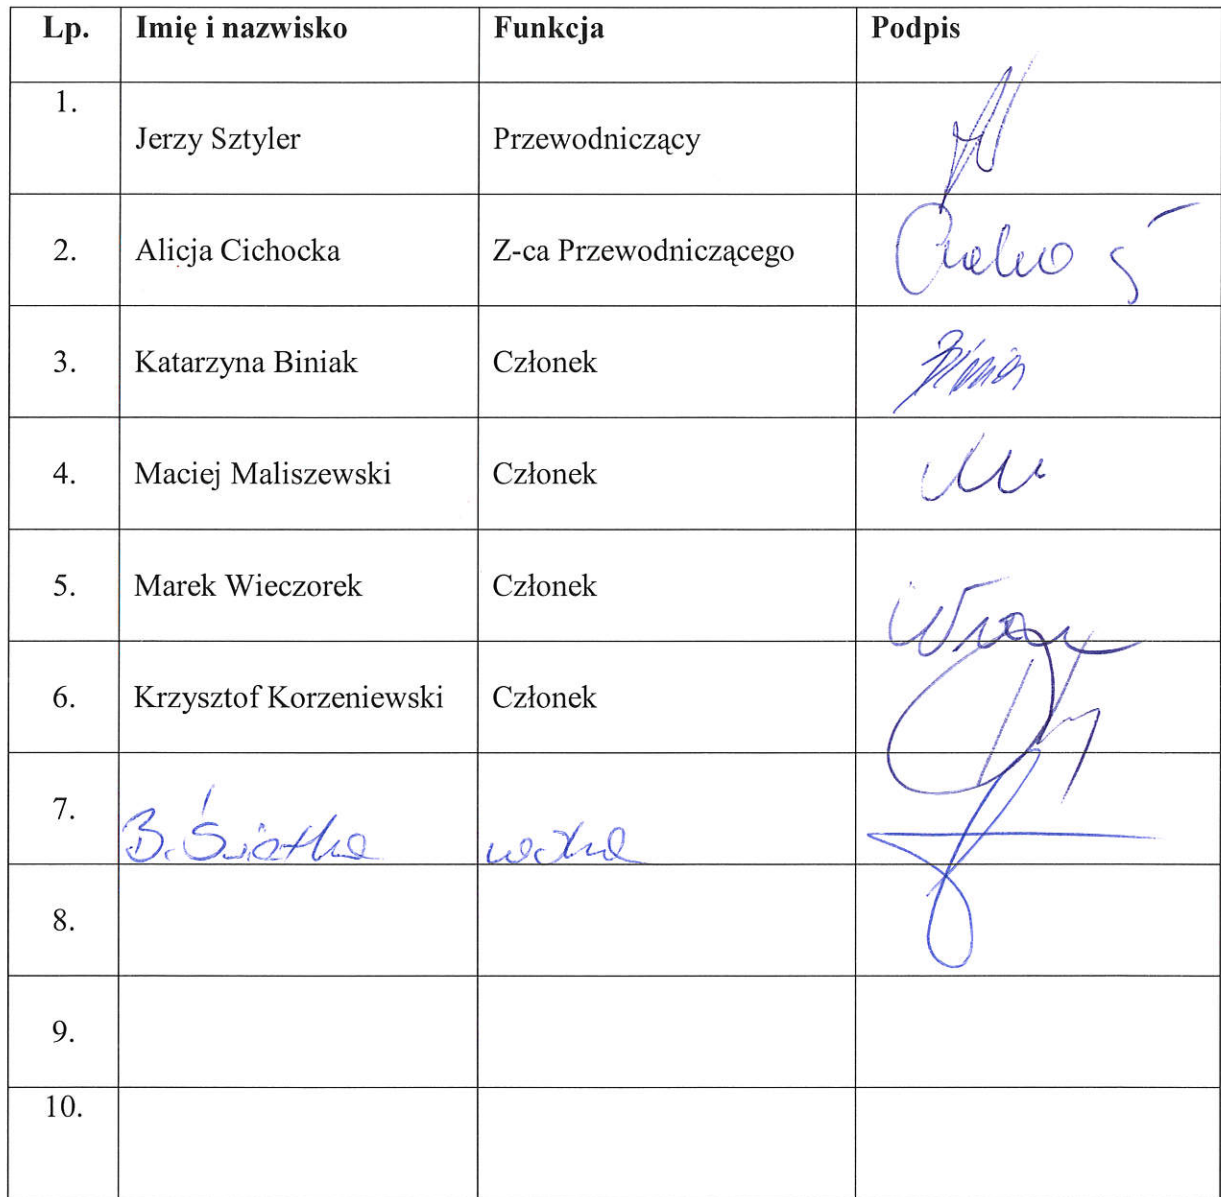 Lp. Imię i nazwisko Funkcja Podpis
1. Jerzy Sztyler Przewodniczący
2. Alicja Cichocka Z-ca Przewodniczącego
3. Katarzyna Biniak Członek
4. Maciej Maliszewski Członek
5. Marek Wieczorek Członek
6. Krzysztof Korzeniewski Członek
7. B. Świątka
8.
9.
10.